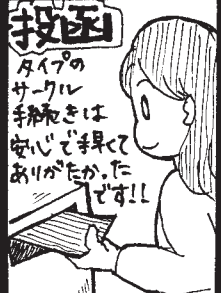 投函
タイプの
サークル
手続きは
安心で手早くて
ありがたかった
です!!